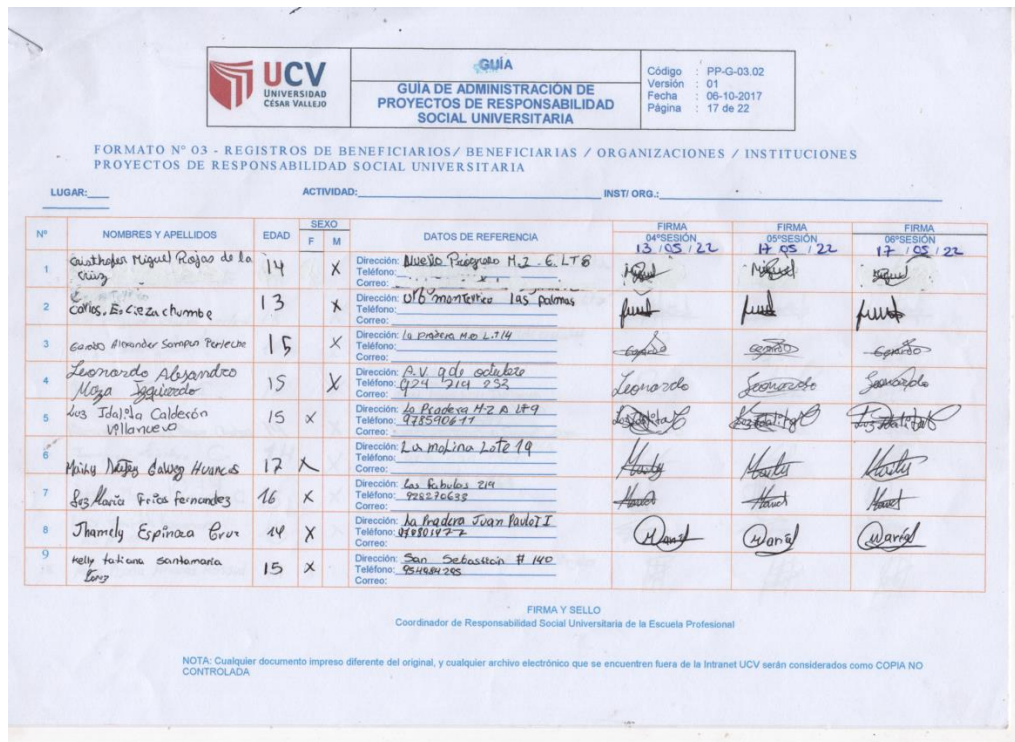 UCV
UNIVERSIDAD
CÉSAR VALLEJO
GUÍA
GUÍA DE ADMINISTRACIÓN DE
PROYECTOS DE RESPONSABILIDAD
SOCIAL UNIVERSITARIA
Código : PP-G-03.02
Versión : 01
Fecha : 06-10-2017
Página : 17 de 22
FORMATO N° 03 - REGISTROS DE BENEFICIARIOS/ BENEFICIARIAS / ORGANIZACIONES / INSTITUCIONES
PROYECTOS DE RESPONSABILIDAD SOCIAL UNIVERSITARIA
LUGAR: ACTIVIDAD: INST/ ORG.:
N° NOMBRES Y APELLIDOS EDAD SEXO F M DATOS DE REFERENCIA FIRMA 04°SESIÓN 13/05/22 FIRMA 05°SESIÓN 17/05/22 FIRMA 06°SESIÓN 17/05/22
1 Miguel Rojas de la Cruz 14 X
Dirección: Nuevo M.2
Teléfono:
Correo:
2 Carlos 13 X
Dirección: Urb las palmas
Teléfono:
Correo:
3 Alexander 15 X
Dirección: la pradera
Teléfono:
Correo:
4 Leonardo Alejandro
Moza Izquierdo 15 X
Dirección: A.V. 9 de octubre
Teléfono: 924 214 253
Correo:
Leonardo Leonardo Leonardo
5 Luz Idalila Calderón
Villanueva 15 X
Dirección: La Pradera
Teléfono: 978590611
Correo:
6 17 X
Dirección: La molina Lote 19
Teléfono:
Correo:
7 Luz María Frias Fernandez 16 X
Dirección: Las Fabulas 214
Teléfono:
Correo:
8 Jhamely Espinoza Cruz 14 X
Dirección: La Pradera Juan Paulo II
Teléfono:
Correo:
9 Kelly tatiana santamaria
15 X
Dirección: San Sebastian # 140
Teléfono: 954984295
Correo:
FIRMA Y SELLO
Coordinador de Responsabilidad Social Universitaria de la Escuela Profesional
NOTA: Cualquier documento impreso diferente del original, y cualquier archivo electrónico que se encuentren fuera de la Intranet UCV serán considerados como COPIA NO
CONTROLADA